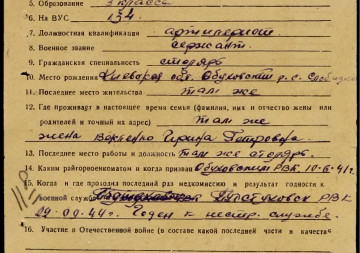 5. Образование 3 класса
6. № ВУС 134
7. Должностная квалификация артиллерист
8. Военное звание сержант
9. Гражданская специальность столяр
10. Место рождения Киевская обл. Обуховский р. с.
11. Последнее место жительства там же
12. Где проживает в настоящее время семья (фамилия, имя и отчество жены или
родителей и точный их адрес) там же
жена Ирина Петровна
13. Последнее место работы и должность там же столяр.
14. Каким райгорвоенкоматом и когда призван Обуховский РВК 10-6-41г.
15. Когда и где проходил последний раз медкомиссию и результат годности к
военной службе РВК
29.09.44г. Годен к нестр. службе.
16. Участие в Отечественной войне (в составе какой последней части и в качестве